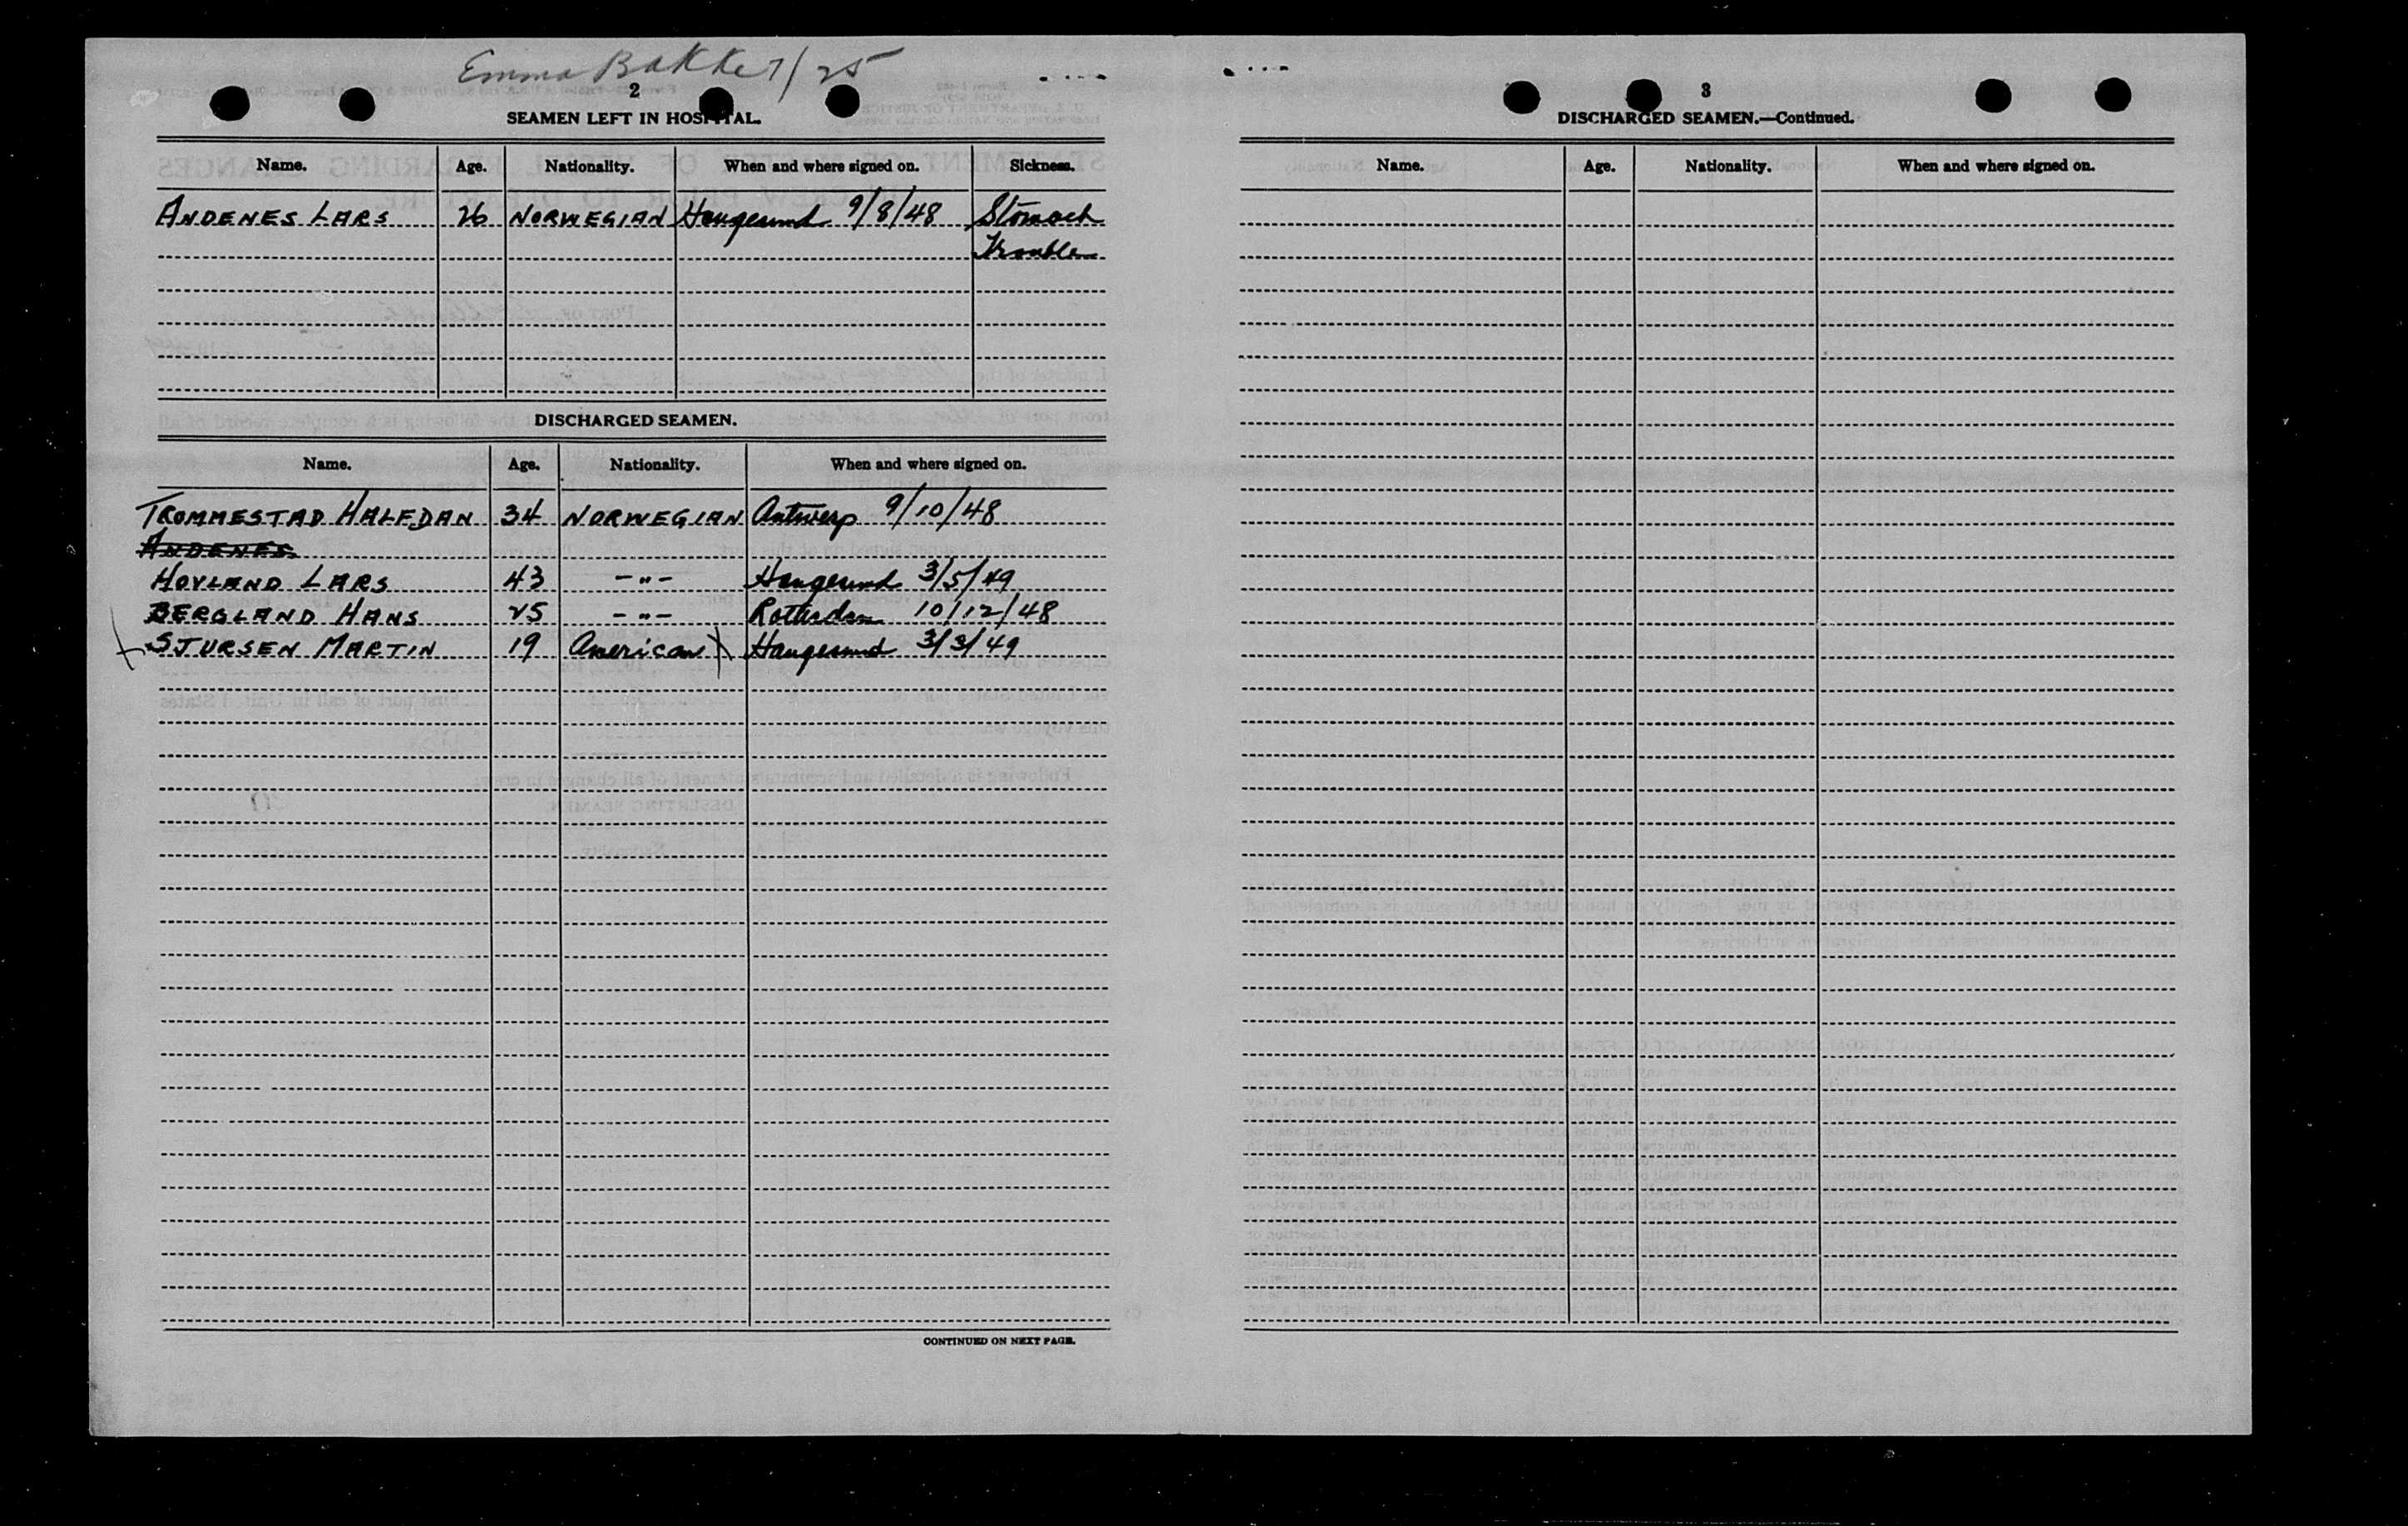 Emma Bakke 7/25
2
SEAMEN LEFT IN HOSPITAL.
Name. Age. Nationality. When and where signed on. Sickness.
ANDENES LARS 26 NORWEGIAN Haugesund 9/8/48 Stomach
Trouble
DISCHARGED SEAMEN.
Name. Age. Nationality. When and where signed on.
TROMMESTAD HALFDAN 34 NORWEGIAN Antwerp 9/10/48
ANDENES
HOVLAND LARS 43 -"- Haugesund 3/5/49
BERGLAND HANS 25 -"- Rotterdam 10/12/48
STURSEN MARTIN 19 American Haugesund 3/3/49
CONTINUED ON NEXT PAGE.
3
DISCHARGED SEAMEN.—Continued.
Name. Age. Nationality. When and where signed on.